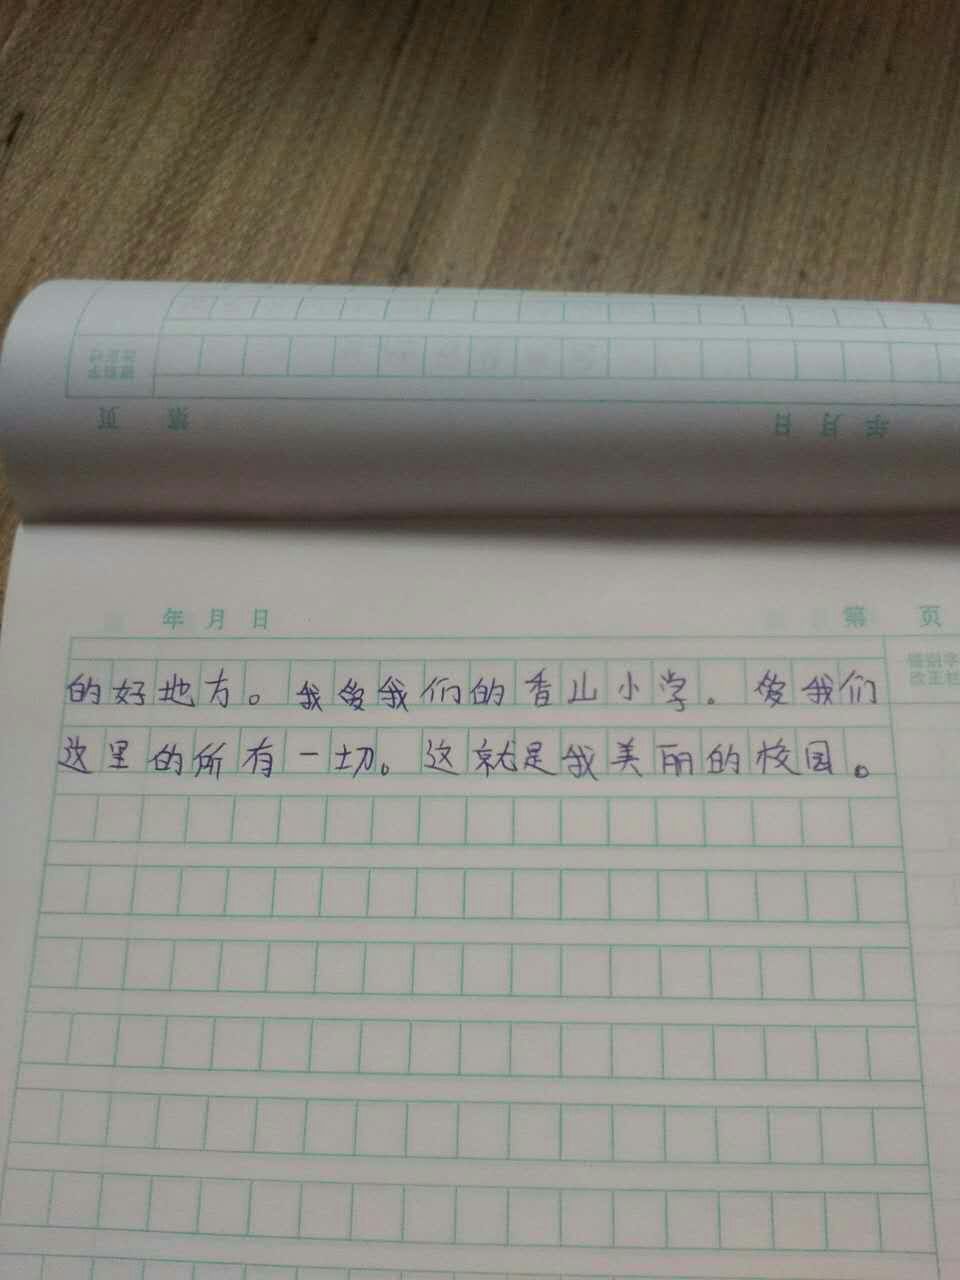 错别字
改正栏
页 第 日 月 年
年 月 日 第 页
错别字
改正栏
的好地方。我爱我们的香山小学.爱我们
这里的所有一切。这就是我美丽的校园。